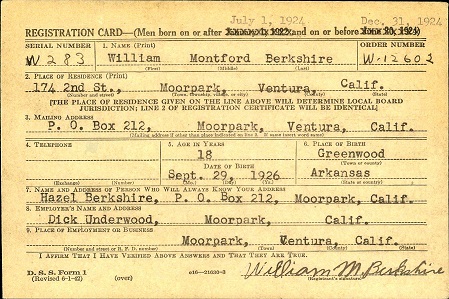 July 1, 1924 Dec. 31, 1924
REGISTRATION CARD—(Men born on or after and on or before
SERIAL NUMBER 1. NAME (Print) ORDER NUMBER
W 283 William Montford Berkshire W-12602
(First) (Middle) (Last)
2. PLACE OF RESIDENCE (Print)
174 2nd St., Moorpark, Ventura, Calif.
(Number and street) (Town, township, village, or city) (County) (State)
[THE PLACE OF RESIDENCE GIVEN ON THE LINE ABOVE WILL DETERMINE LOCAL BOARD
JURISDICTION; LINE 2 OF REGISTRATION CERTIFICATE WILL BE IDENTICAL]
3. MAILING ADDRESS
P. O. Box 212, Moorpark, Ventura, Calif.
[Mailing address if other than place indicated on line 2. If same insert word same]
4. TELEPHONE 5. AGE IN YEARS 6. PLACE OF BIRTH
18 Greenwood
DATE OF BIRTH (Town or county)
Sept. 29, 1926 Arkansas
(Exchange) (Number) (Mo.) (Day) (Yr.) (State or country)
7. NAME AND ADDRESS OF PERSON WHO WILL ALWAYS KNOW YOUR ADDRESS
Hazel Berkshire, P. O. Box 212, Moorpark, Calif.
8. EMPLOYER'S NAME AND ADDRESS
Dick Underwood, Moorpark, Calif.
9. PLACE OF EMPLOYMENT OR BUSINESS
Moorpark, Ventura, Calif.
(Number and street or R. F. D. number) (Town) (County) (State)
I AFFIRM THAT I HAVE VERIFIED ABOVE ANSWERS AND THAT THEY ARE TRUE.
D. S. S. Form 1
(Revised 6-1-42) (over) William M Berkshire
(Registrant's signature)